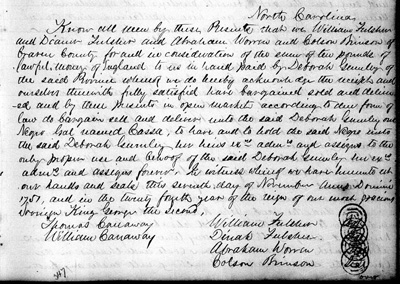 North Carolina
Know all men by these Presents that we William Fulsher
and Dinah Fulsher and Abraham Worren and Colson Brinson of
Craven County for and in consideration of the sum of ten pounds of
lawful money of England to us in hand paid by Deborah Gumley of
the said Province whereof we do hereby acknowledge the receipt and
ourselves therewith fully satisfied have bargained sold and deliver-
ed and by these Presents in open market according to due form of
law do bargain sell and deliver unto the said Deborah Gumley one
Negro Gal named Cassa, to have and to hold the said Negro unto
the said Deborah Gumley her heirs exrs admrs and assigns to the
only proper use and behoof of the said Deborah Gumley her exrs
admrs and assigns forever. In witness whereof we have hereunto set
our hands and seals this seventh day of November Anno Domini
1751, and in the twenty fourth year of the reign of our most gracious
Sovreign King George the Second,
Thomas Carraway William Fulsher
William Carraway Dinah Fulsher
Abraham Worren
Colson Brinson